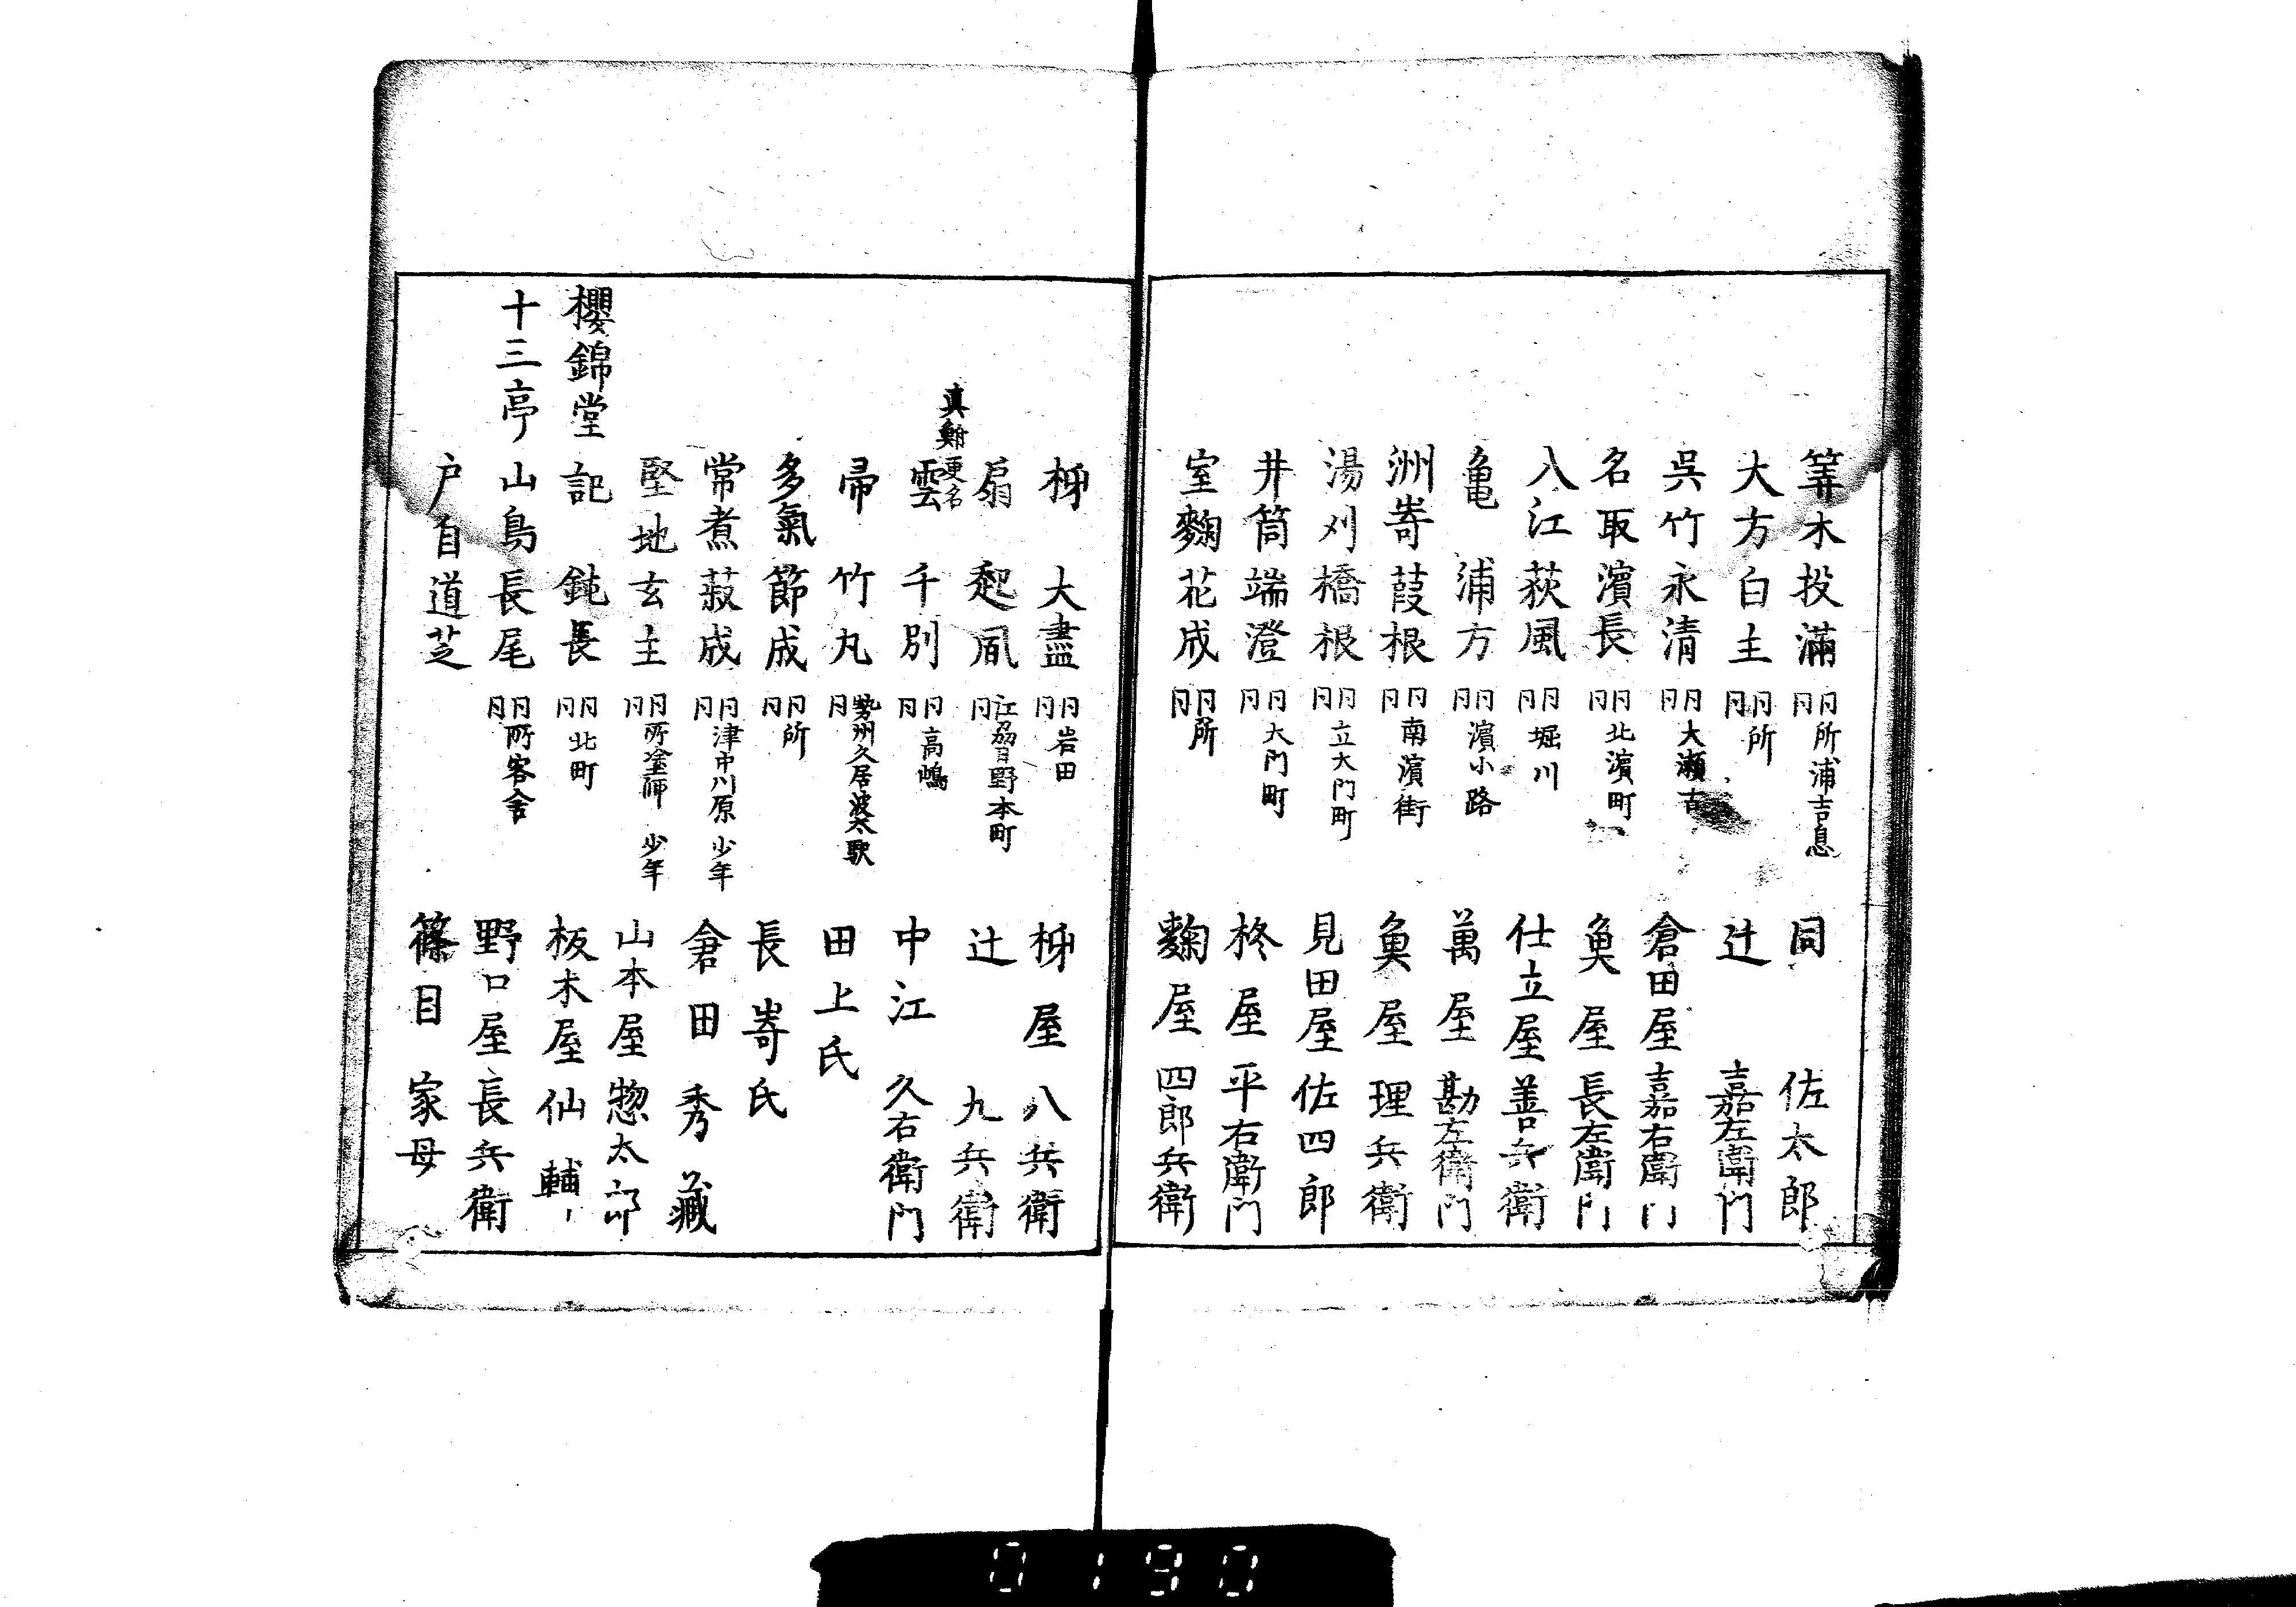 筭木投滿 同同所浦吉息 同 佐太郎
大方白主 同同所 辻 嘉左衛門
呉竹永清 同同大瀬古 倉田屋嘉右衛門
名取濱長 同同北濱町 魚屋長左衛門
八江荻風 同同堀川 仕立屋善兵衛
亀 浦方 同同濱小路 萬屋勘左衛門
洲嵜葭根 同同南濱街 魚屋理兵衛
湯刈橋根 同同立大門町 見田屋佐四郎
井筒端澄 同同大門町 柊屋平右衛門
室麹花成 同同所 麹屋四郎兵衛
栁 大盡 同同岩田 栁屋八兵衛
扇 起凨 江刕日野本町 同 辻 九兵衛
真翰更名
雲 千別 同同高嶋 中江久右衛門
帚 竹丸 勢州久居波太歌 同 田上氏
多氣節成 同同所 長嵜氏
常煮蔌成 同同津中川原 少年 倉田秀藏
堅地玄主 同同所塗師 少年 山本屋惣太郎
櫻錦堂 記 鈍長 同同北町 板木屋仙輔
十三亭 山鳥長尾 同同所客舎 野口屋長兵衛
戸自道芝 篠目家母
0190